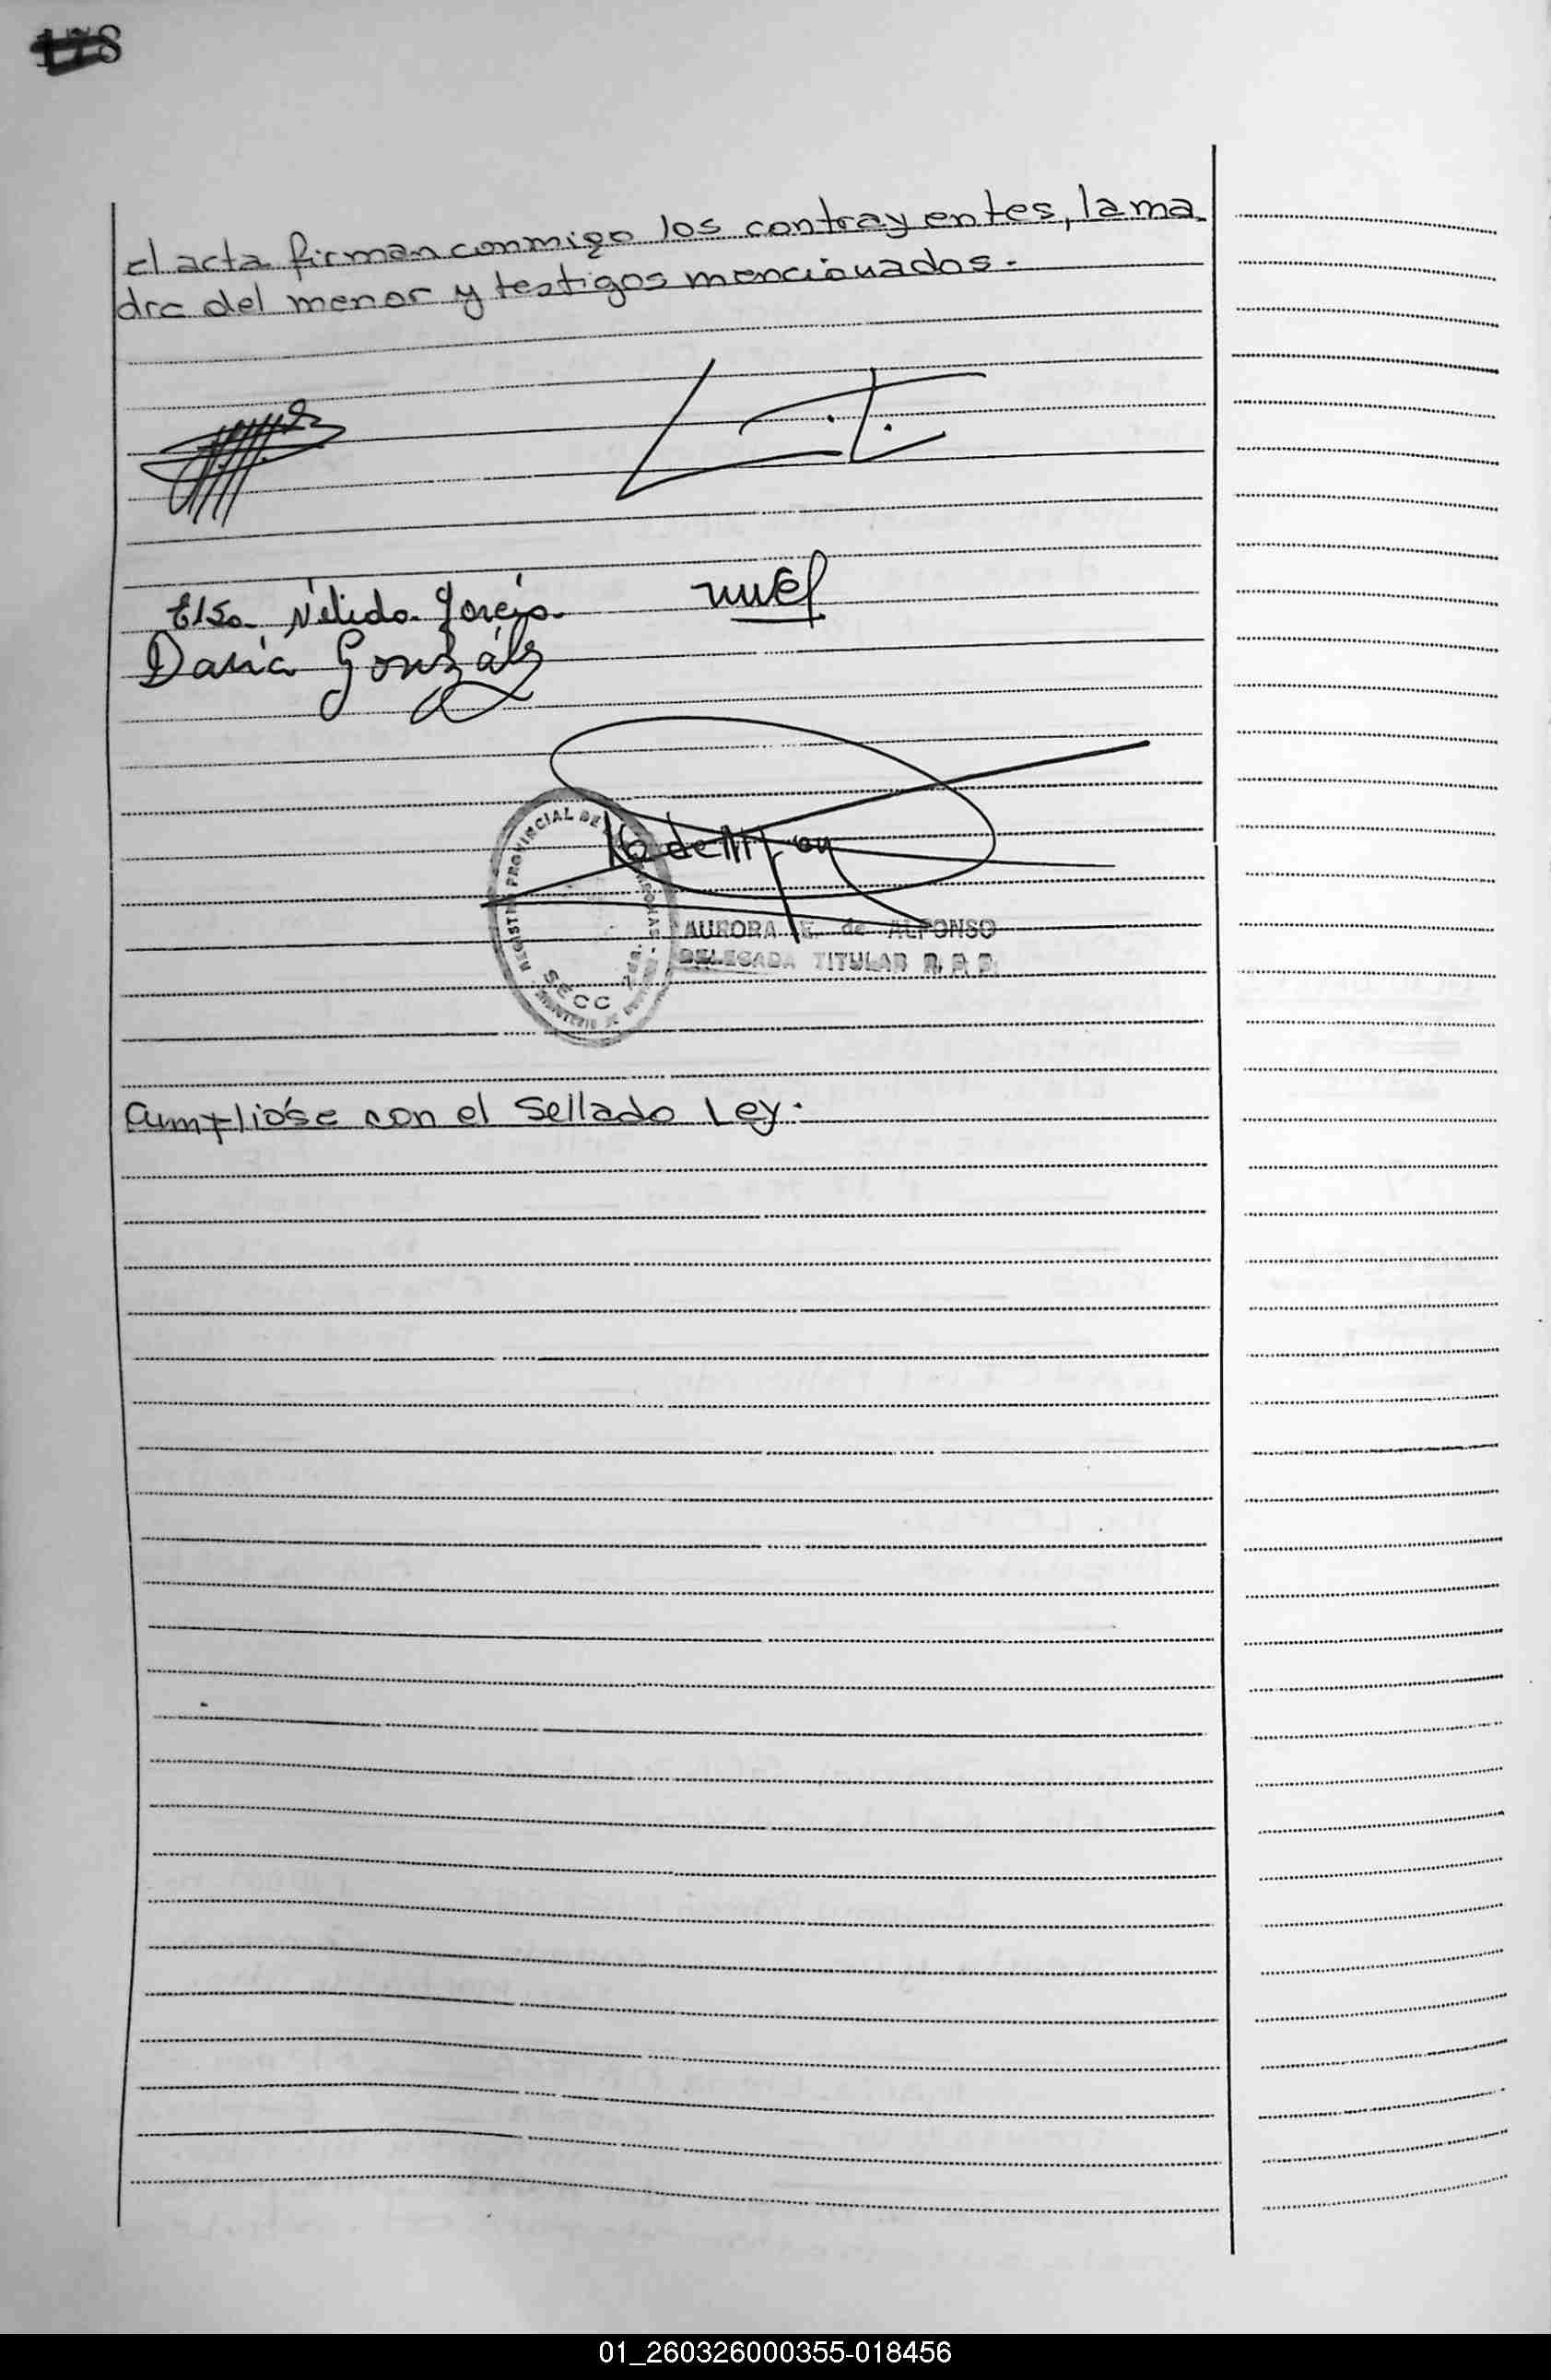 el acta firman conmigo los contrayentes, la ma
dre del menor y testigos mencionados.-
Elsa Nélida
Daría González
REGISTRO PROVINCIAL DE
SECC
AURORA E. de ALFONSO
DELEGADA TITULAR R. P. P.
Cumplióse con el Sellado Ley.-
01_260326000355-018456